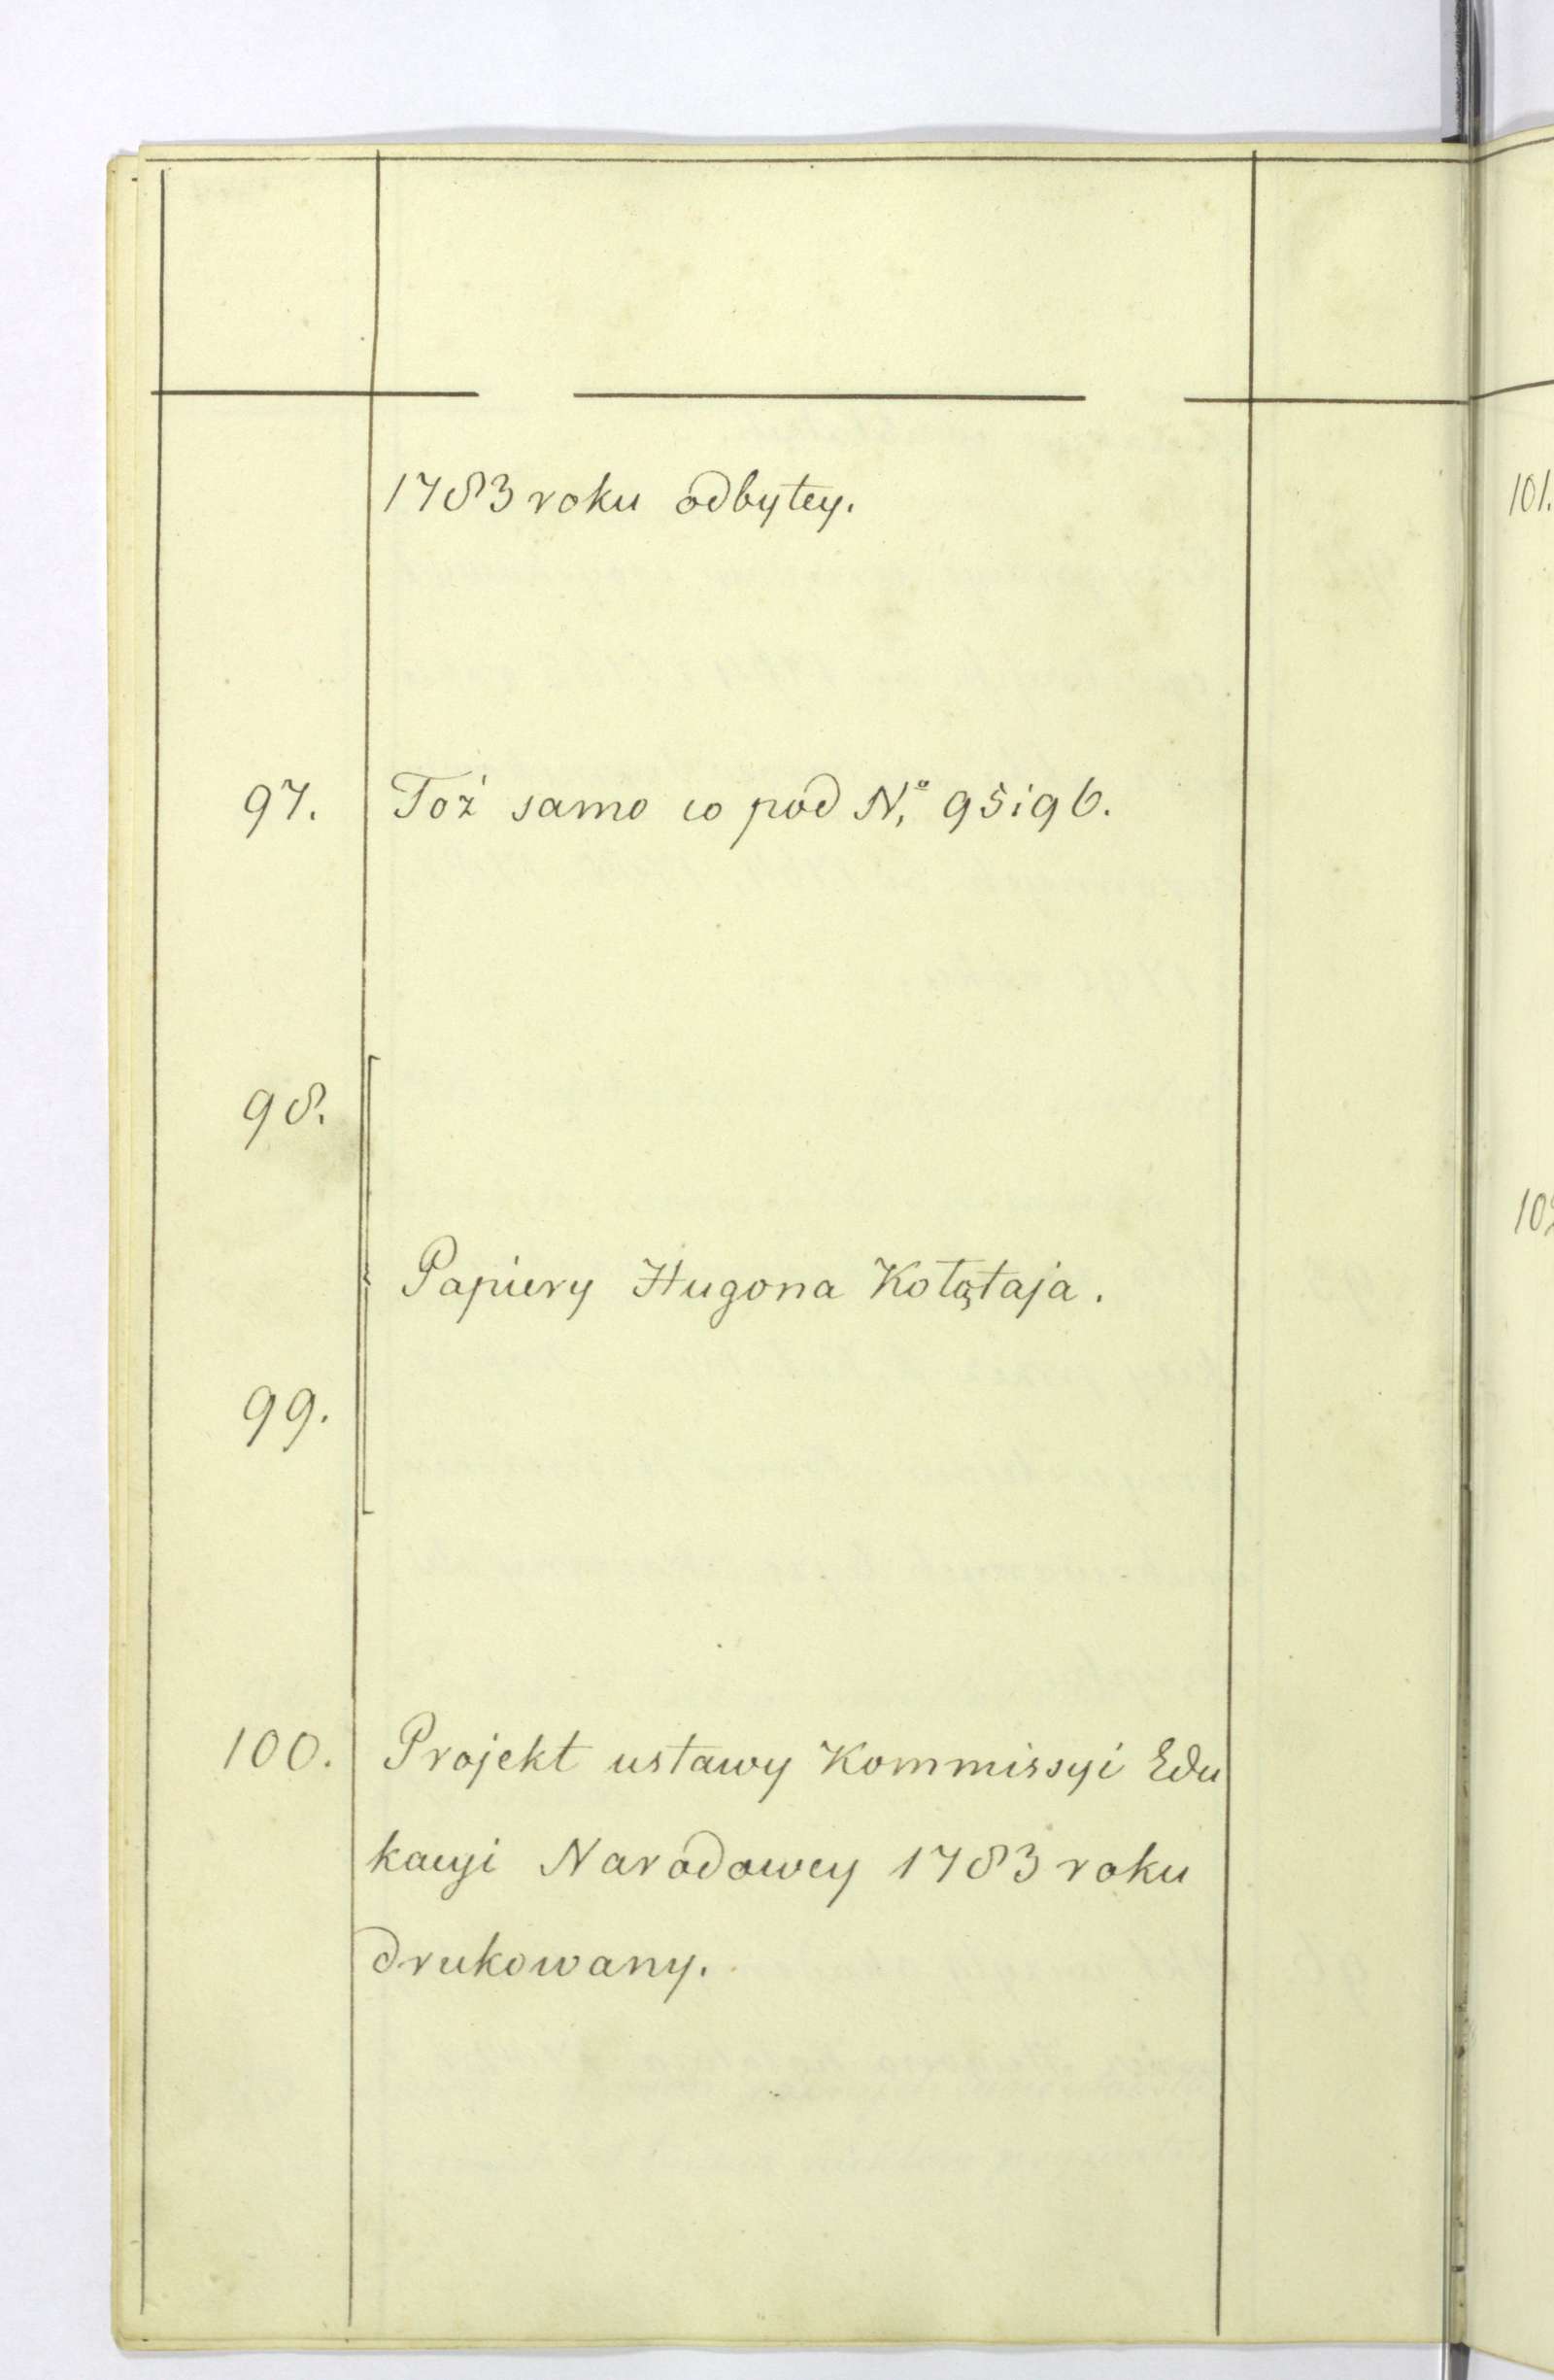 1783 roku odbytey.
97. Toż samo co pod N.° 95 i 96.
98.
Papiery Hugona Kołątaja.
99.
100. Projekt ustawy Kommissyi Edu
kacyi Narodowey 1783 roku
drukowany.
101.